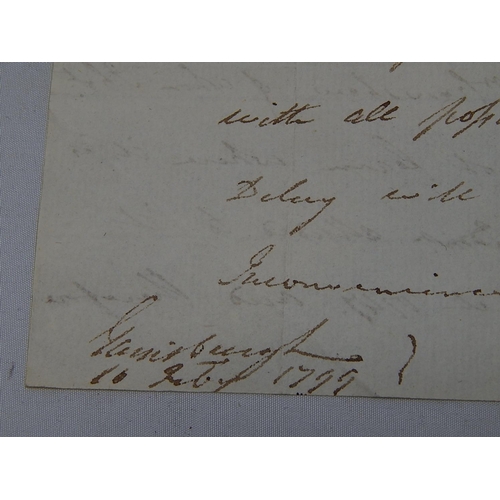 with all poss
Delay will
Inconvenience
Gainsburgh
16 Feby 1799